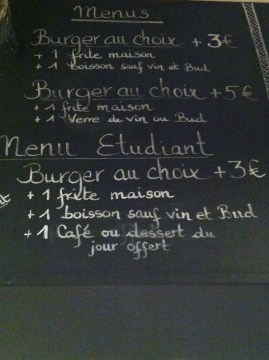 Menus
Burger au choix + 3€
+ 1 frite maison
+ 1 Boisson sauf vin et Bud
Burger au choix + 5€
+ 1 frite maison
+ 1 Verre de vin ou Bud
Menu Etudiant
Burger au choix + 3€
+ 1 frite maison
+ 1 boisson sauf vin et Bud
+ 1 Café ou dessert du
jour offert